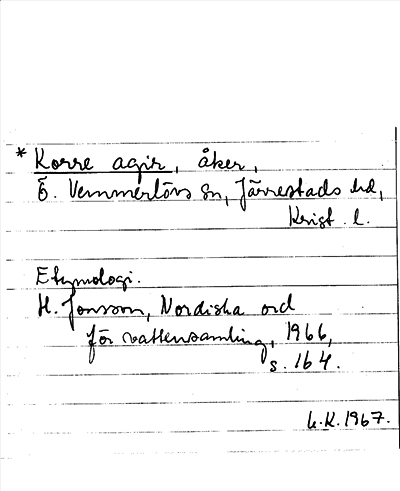 * Korre agir, åker,
Ö. Vemmerlövs sn, Järrestads hd,
Krist. l.
Etymologi.
H. Jonsson, Nordiska ord
för vattensamling, 1966,
s. 164.
L.K. 1967.